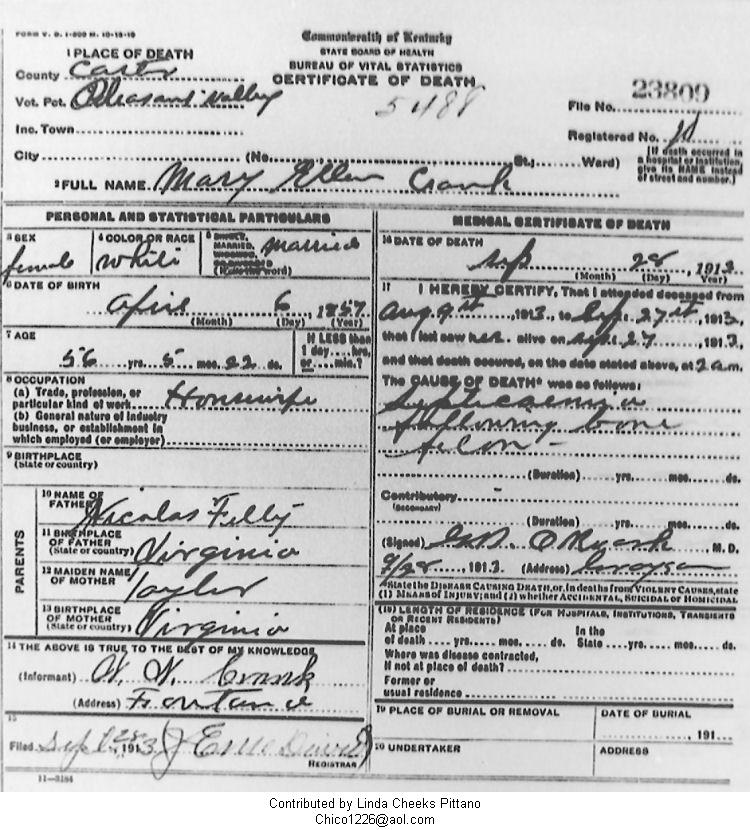 FORM V. S. 1-500 M. 10-15-10
Commonwealth of Kentucky
STATE BOARD OF HEALTH
BUREAU OF VITAL STATISTICS
CERTIFICATE OF DEATH
1 PLACE OF DEATH
County Carter
Vot. Pct. Pleasant Valley
5488
23809
File No.
Inc. Town
Registered No.
City (No. St.; Ward)
[If death occurred in a hospital or institution, give its NAME instead of street and number.]
2 FULL NAME Mary Ellen Crank
PERSONAL AND STATISTICAL PARTICULARS
3 SEX
female
4 COLOR OR RACE
White
5 SINGLE, MARRIED, WIDOWED, OR DIVORCED (Write the word)
married
6 DATE OF BIRTH
April 6, 1857
(Month) (Day) (Year)
7 AGE
56 yrs. 5 mos. 22 ds.
If LESS than 1 day....hrs. or.....min.?
8 OCCUPATION
(a) Trade, profession, or particular kind of work Housewife
(b) General nature of industry business, or establishment in which employed (or employer)
9 BIRTHPLACE
(State or country)
PARENTS
10 NAME OF FATHER Nicolas
11 BIRTHPLACE OF FATHER
(State or country) Virginia
12 MAIDEN NAME OF MOTHER Taylor
13 BIRTHPLACE OF MOTHER
(State or country) Virginia
14 THE ABOVE IS TRUE TO THE BEST OF MY KNOWLEDGE
(Informant) Crank
(Address) Fontana
15
Filed Sept 28 1913 J E McDavid
REGISTRAR
11—3184
MEDICAL CERTIFICATE OF DEATH
16 DATE OF DEATH
Sep 28, 1913
(Month) (Day) Year)
17 I HEREBY CERTIFY, That I attended deceased from
Aug 9st, 1913, to Sep. 27st, 1913,
that I last saw her alive on Sept 27, 1913,
and that death occured, on the date stated above, at 2 am.
The CAUSE OF DEATH* was as follows:
Septicaemia
following bone
felon -
(Duration) yrs. mos. ds.
Contributory
(SECONDARY)
(Duration) yrs. mos. ds.
(Signed) M.D.
9/28 1913 (Address) Grayson
*State the DISEASE CAUSING DEATH, or, in deaths from VIOLENT CAUSES, state (1) MEANS OF INJURY; and (2) whether ACCIDENTAL, SUICIDAL or HOMICIDAL
(18) LENGTH OF RESIDENCE (FOR HOSPITALS, INSTITUTIONS, TRANSIENTS OR RECENT RESIDENTS)
At place of death yrs. mos. ds. In the State yrs. mos. ds.
Where was disease contracted,
if not at place of death?
Former or
usual residence
19 PLACE OF BURIAL OR REMOVAL
DATE OF BURIAL
191
20 UNDERTAKER
ADDRESS
Contributed by Linda Cheeks Pittano
Chico1226@aol.com